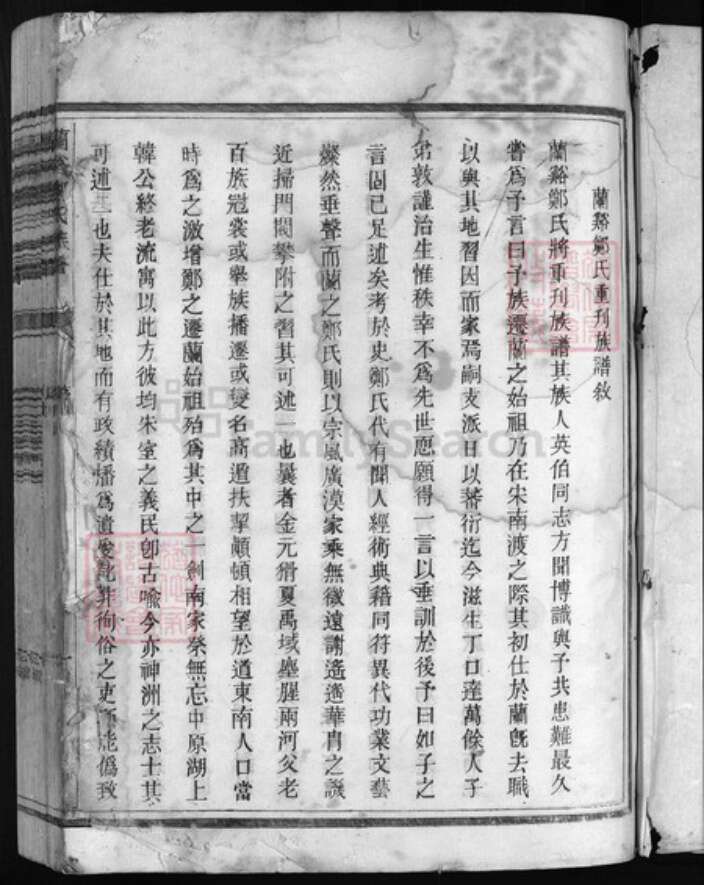 蘭谿鄭氏重刊族譜敘
蘭谿鄭氏將重刊族譜其族人英伯同志方聞博識與予共患難最久
嘗為予言曰予族遷蘭之始祖乃在宋南渡之際其初仕於蘭旣去職
以與其地習因而家焉嗣支派日以蕃衍迄今滋生丁口達萬餘人子
弟敦謹治生惟秩幸不為先世慝願得一言以垂訓於後予曰如子之
言固已足述矣考於史鄭氏代有聞人經術典藉同符異代功業文藝
燦然垂聲而蘭之鄭氏則以宗風廣漠家乘無徵遠謝遙遙華胄之譏
近掃門閥攀附之習其可述一也曩者金元猾夏禹域塵腥兩河父老
百族冠裳或舉族播遷或變名高遁扶挈顛頓相望於道東南人口當
時為之激增鄭之遷蘭始祖殆為其中之一劍南家祭無忘中原湖上
韓公終老流寓以此方彼均宋室之義民卽古喩今亦神洲之志士其
可述二也夫仕於其地而有政績播為遺愛此非徇俗之吏所能僞致
FamilySearch